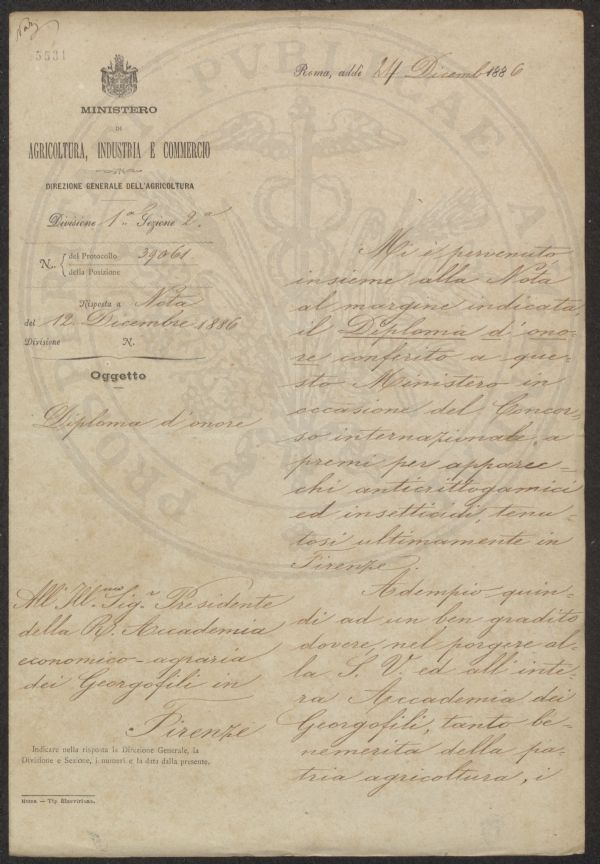 5531
MINISTERO
DI
AGRICOLTURA, INDUSTRIA E COMMERCIO
DIREZIONE GENERALE DELL'AGRICOLTURA
Divisione 1.a Sezione 2.a
N. del Protocollo 39061
della Posizione
Risposta a Nota
del 12 Dicembre 1886
Divisione N.
Oggetto
Diploma d'onore
All'Ill.mo Sig.r Presidente
della R. Accademia
economico-agraria
dei Georgofili in
Firenze
Indicare nella risposta la Direzione Generale, la
Divisione e Sezione, i numeri e la data dalla presente.
ROMA — Tip Elzeviriana.
Roma, addì 24 Dicemb 1886
Mi è pervenuto,
insieme alla Nota
al margine indicata,
il Diploma d'ono-
re conferito a que-
sto Ministero in
occasione del Concor-
so internazionale a
premi per apparec-
chi anticrittogamici
ed insetticidi, tenu-
tosi ultimamente in
Firenze.
Adempio quin-
di ad un ben gradito
dovere, nel porgere al-
la S. V. ed all'inte-
ra Accademia dei
Georgofili, tanto be-
nemerita della pa-
tria agricoltura, i